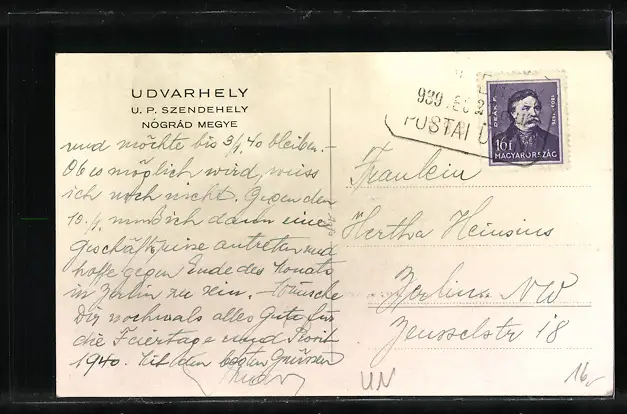 UDVARHELY
U. P. SZENDEHELY
NÓGRÁD MEGYE
und möchte bis 3/1 40 bleiben. –
Ob es möglich wird, weiss
ich noch nicht. Gegen den
10./1. muß ich dann eine
Geschäftsreise antreten und
hoffe gegen Ende des Monats
in Berlin zu sein. – Wünsche
Dir nochmals alles Gute für
die Feiertage und Prosit
1940. Mit den besten Grüssen
939
POSTAI Ü
DEÁK F.
1803-1876
16 f
MAGYARORSZÁG
Fräulein
Hertha Heinsius
Berlin NW
Zeusselstr 18
UN
16,-